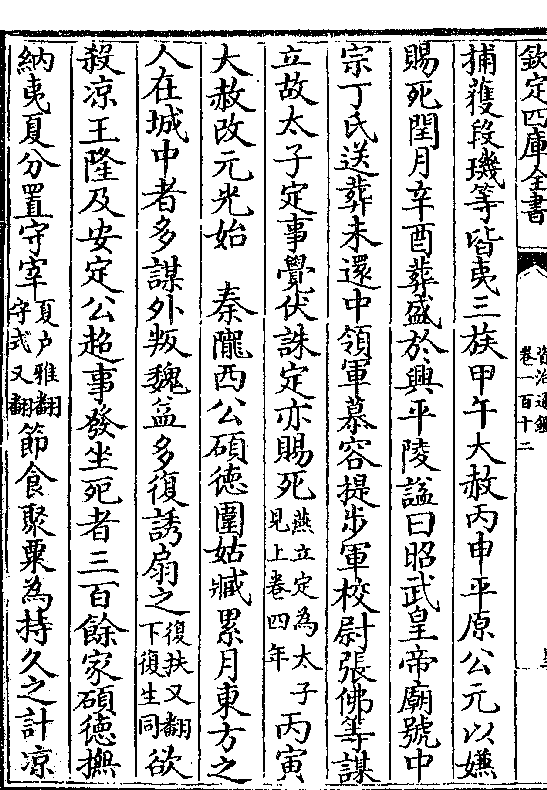 欽定四庫全書
資治通鑑
卷一百十二
捕獲段璣等皆夷三族甲午大赦丙申平原公元以嫌
賜死閏月辛酉葬盛於興平陵諡曰昭武皇帝廟號中
宗丁氏送葬未還中領軍慕容提步軍校尉張佛等謀
立故太子定事覺伏誅定亦賜死燕立定為太子見上卷四年丙寅
大赦改元光始　秦隴西公碩德圍姑臧累月東方之
人在城中者多謀外叛魏益多復誘扇之復扶又翻下復生同欲
殺涼王隆及安定公超事發坐死者三百餘家碩德撫
納夷夏分置守宰夏户雅翻守式又翻節食聚粟為持久之計涼